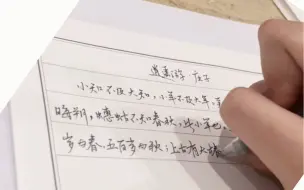 逍遥游 庄子
小知不及大知，小年不及大年，
晦朔，蟪蛄不知春秋，此小年也，
岁为春，五百岁为秋；上古有大椿